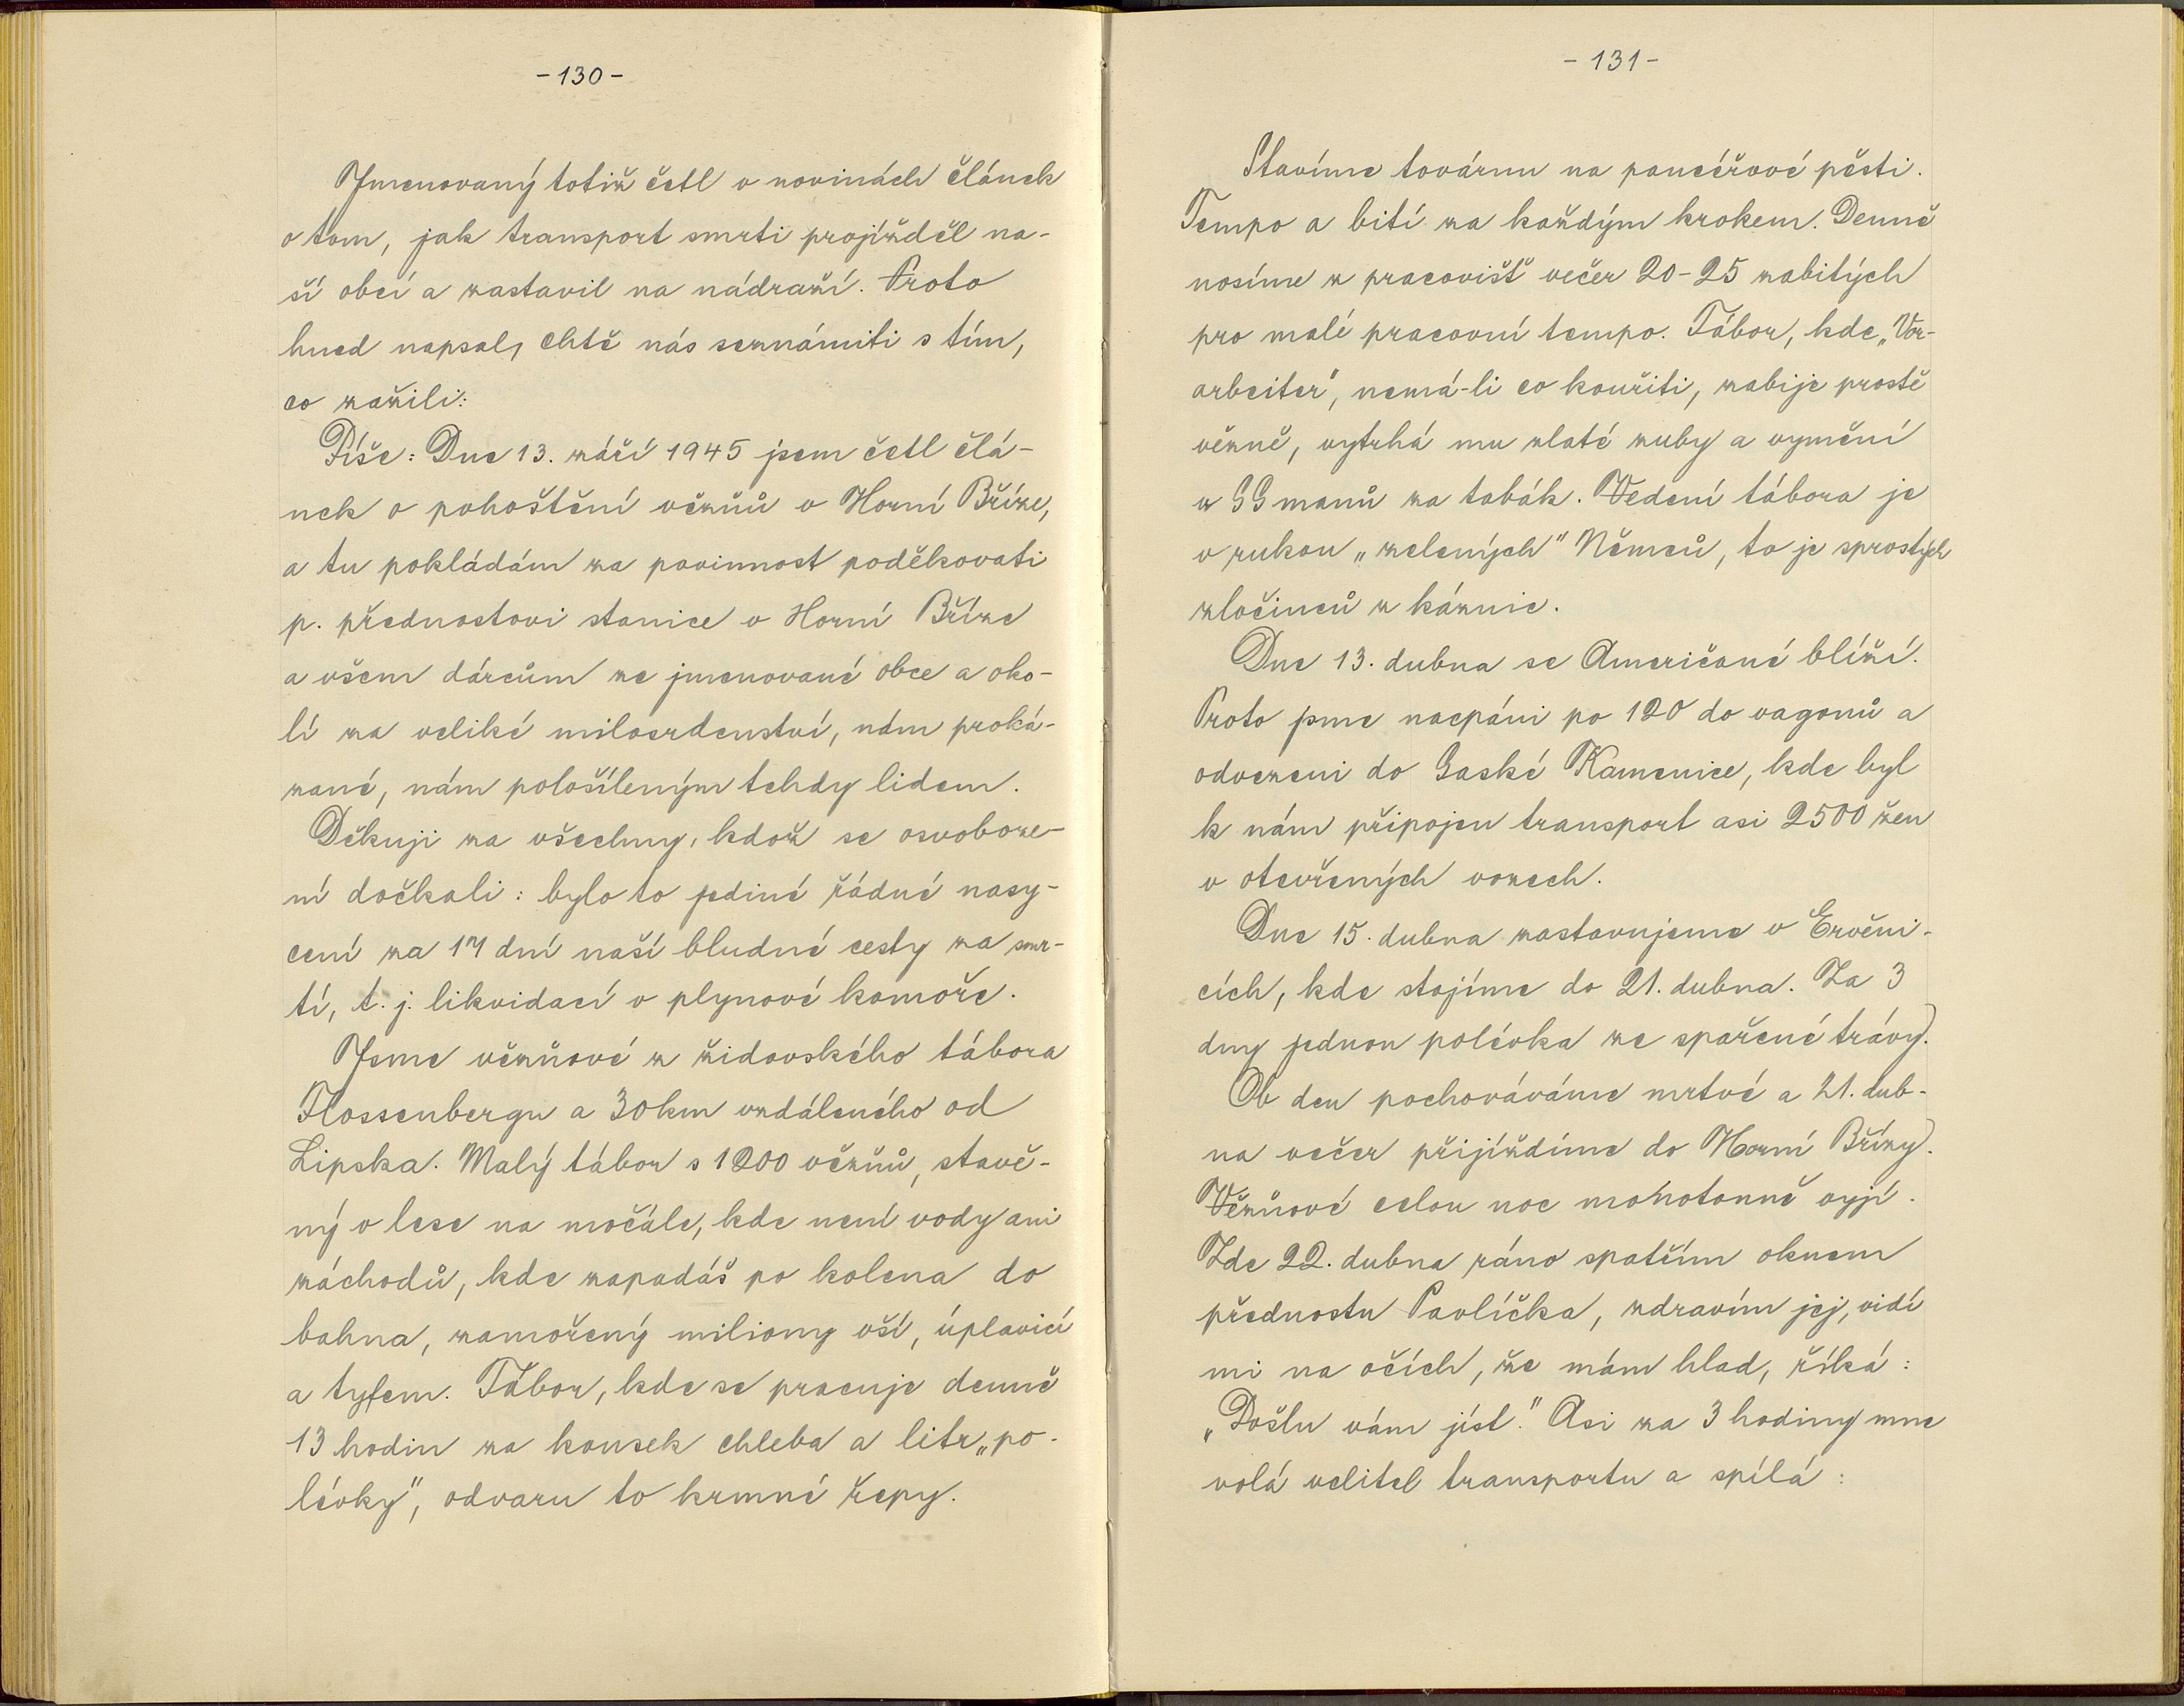 -130-
Jmenovaný totiž četl v novinách článek
o tom, jak transport smrti projížděl na-
ší obcí a zastavil na nádraží. Proto
hned napsal, chtě nás seznámiti s tím,
co zažili:
Píše: Dne 13. září 1945 jsem četl člá-
nek o pohoštění vězňů v Horní Bříze,
a tu pokládám za povinnost poděkovati
p. přednostovi stanice v Horní Bříze
a všem dárcům ze jmenované obce a oko-
lí za veliké milosrdenství, nám proká-
zané, nám pološíleným tehdy lidem.
Děkuji za všechny, kdož se osvoboze-
ní dočkali: bylo to jediné řádné nasy-
cení za 17 dní naší bludné cesty za smr-
tí, t. j. likvidací v plynové komoře.
Jsme vězňové z židovského tábora
Flossenbergu a 30km vzdáleného od
Lipska. Malý tábor s 1200 vězňů, stavě-
ný v lese na močále, kde není vody ani
záchodů, kde zapadáš po kolena do
bahna, zamořený miliony vší, úplavicí
a tyfem. Tábor, kde se pracuje denně
13 hodin za kousek chleba a litr „po-
lévky", odvaru to krmné řepy.
-131-
Stavíme továrnu na pancéřové pěsti.
Tempo a bití za každým krokem. Denně
nosíme z pracovišť večer 20-25 zabitých
pro malé pracovní tempo. Tábor, kde „Vor-
arbeiter", nemá-li co kouřiti, zabije prostě
vězně, vytrhá mu zlaté zuby a vymění
u SS manů za tabák. Vedení tábora je
v rukou „zelených" Němců, to je sprostých
zločinců z káznic.
Dne 13. dubna se Američané blíží.
Proto jsme nacpáni po 120 do vagonů a
odvezeni do Saské Kamenice, kde byl
k nám připojen transport asi 2500 žen
v otevřených vozech.
Dne 15. dubna zastavujeme v Ervěni-
cích, kde stojíme do 21. dubna. Za 3
dny jednou polévka ze spařené trávy.
Ob den pochováváme mrtvé a 21. dub-
na večer přijíždíme do Horní Břízy.
Vězňové celou noc monotonně vyjí.
Zde 22. dubna ráno spatřím oknem
přednostu Pavlíčka, zdravím jej, vidí
mi na očích, že mám hlad, říká:
„Pošlu vám jíst." Asi za 3 hodiny mne
volá velitel transportu a spílá: